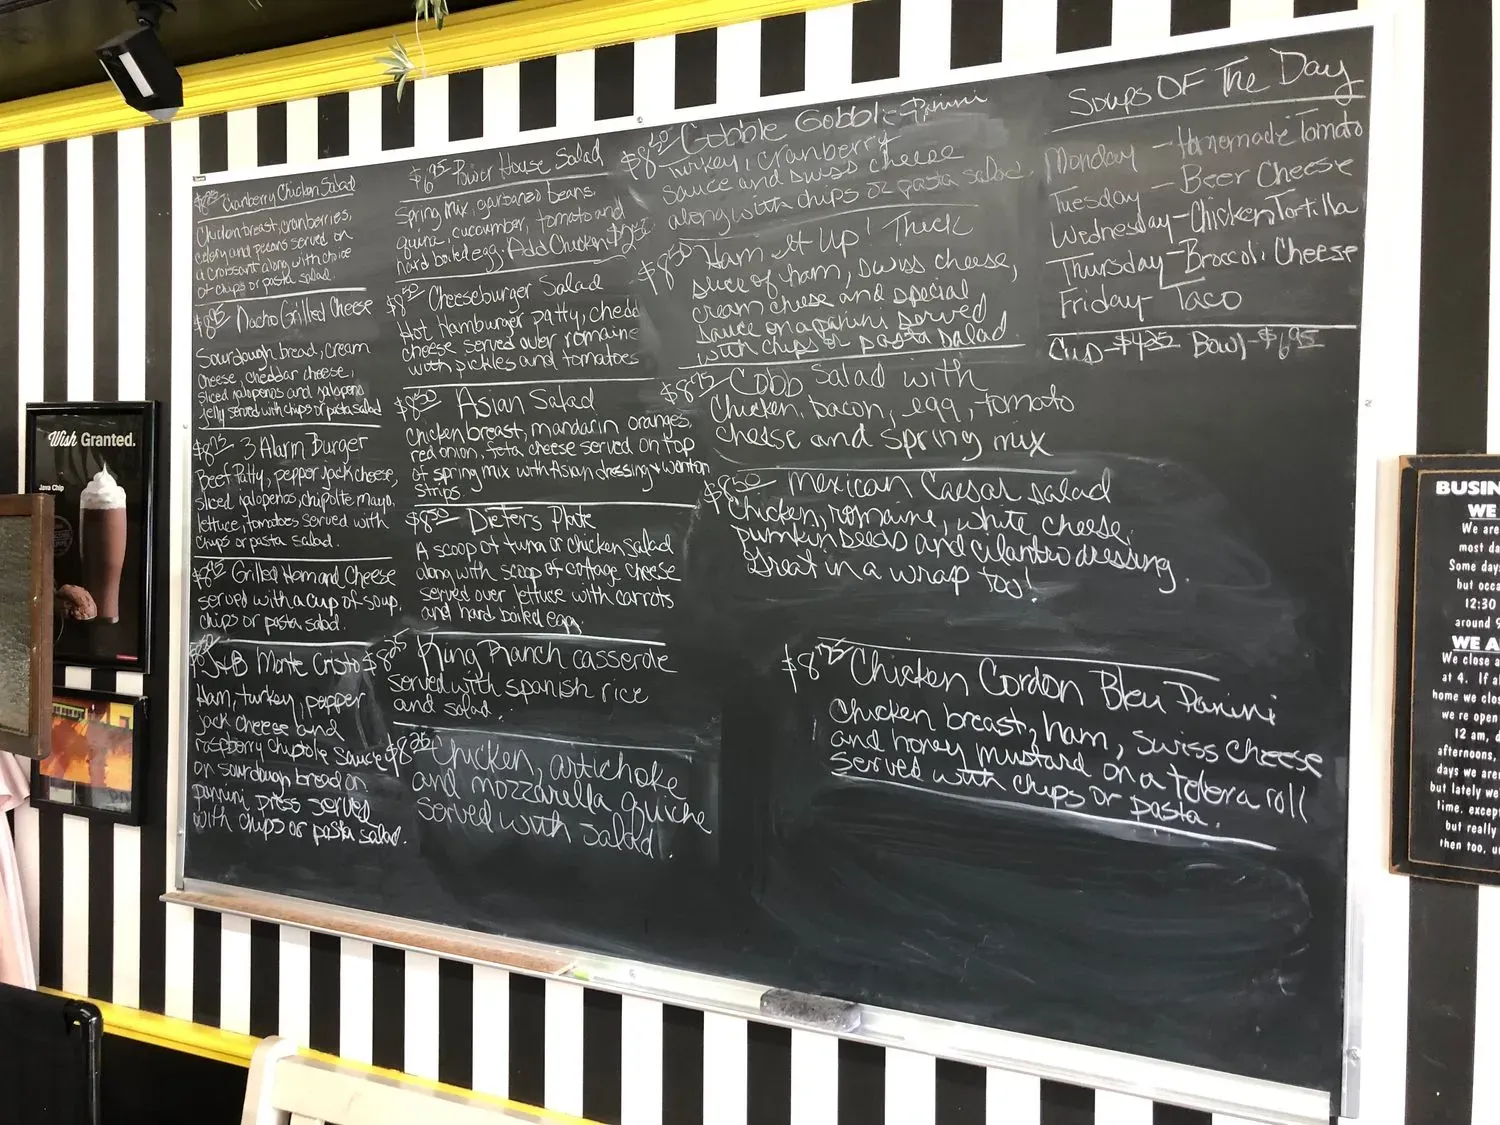 $8.95 Cranberry Chicken Salad
Chicken breast, cranberries,
celery and pecans served on
a croissant along with choice
of chips or pasta salad.
$8.95 Nacho Grilled Cheese
Sourdough bread, cream
cheese, cheddar cheese,
sliced jalopenos and jalopeno
jelly served with chips or pasta salad
$8.95 3 Alarm Burger
Beef Patty, pepper jack cheese,
sliced jalopenos, chipolte mayo,
lettuce, tomatoes served with
chips or pasta salad.
$8.95 Grilled Ham and Cheese
served with a cup of soup,
chips or pasta salad.
Monte Cristo
Ham, turkey, pepper
jack cheese and
raspberry chipotle sauce
on sourdough bread on
pannini press served
with chips or pasta salad.
$6.95 Power House Salad
Spring mix, garbanzo beans,
quina, cucumber, tomato and
hard boiled egg, Add Chicken $2.25
$8.50 Cheeseburger Salad
Hot Hamburger patty, ched
cheese served over romaine
with pickles and tomatoes
$8.50 Asian Salad
chicken breast, mandarin oranges,
red onion, feta cheese served on top
of spring mix with Asian dressing + wonton
strips
$8.50 Dieters Plate
A scoop of tuna or chicken salad
along with scoop of cottage cheese
served over lettuce with carrots
and hard boiled egg
King Ranch casserole
served with spanish rice
and salad.
$8.25 Chicken, artichoke
and mozzarella quiche
served with salad.
Gobble Gobble Panini
Turkey, cranberry
sauce and swiss cheese
along with chips or pasta salad.
$8.50 Ham It Up! Thick
slice of ham, swiss cheese,
cream cheese and special
sauce on a panini served
with chips or pasta salad
$8.75 Cobb Salad with
Chicken, bacon, egg, tomato
cheese and spring mix
$8.50 Mexican Caesar Salad
Chicken, romaine, white cheese,
pumkin seeds and cilantro dressing.
Great in a wrap too!
$8.75 Chicken Cordon Bleu Panini
Chicken breast, ham, swiss cheese
and honey mustard on a telera roll
served with chips or pasta.
Soups Of The Day
Monday - Homemade Tomato
Tuesday - Beer Cheese
Wednesday - Chicken Tortilla
Thursday - Broccoli Cheese
Friday - Taco
Cup - $4.25 Bowl - $6.95
Wish Granted.
Java Chip
BUSIN
WE
We are
most da
Some days
but occa
12:30
around 9
WE A
We close a
at 4. If a
home we clos
we re open
12 am, d
afternoons,
days we aren
but lately we
time, except
but really
then too, u